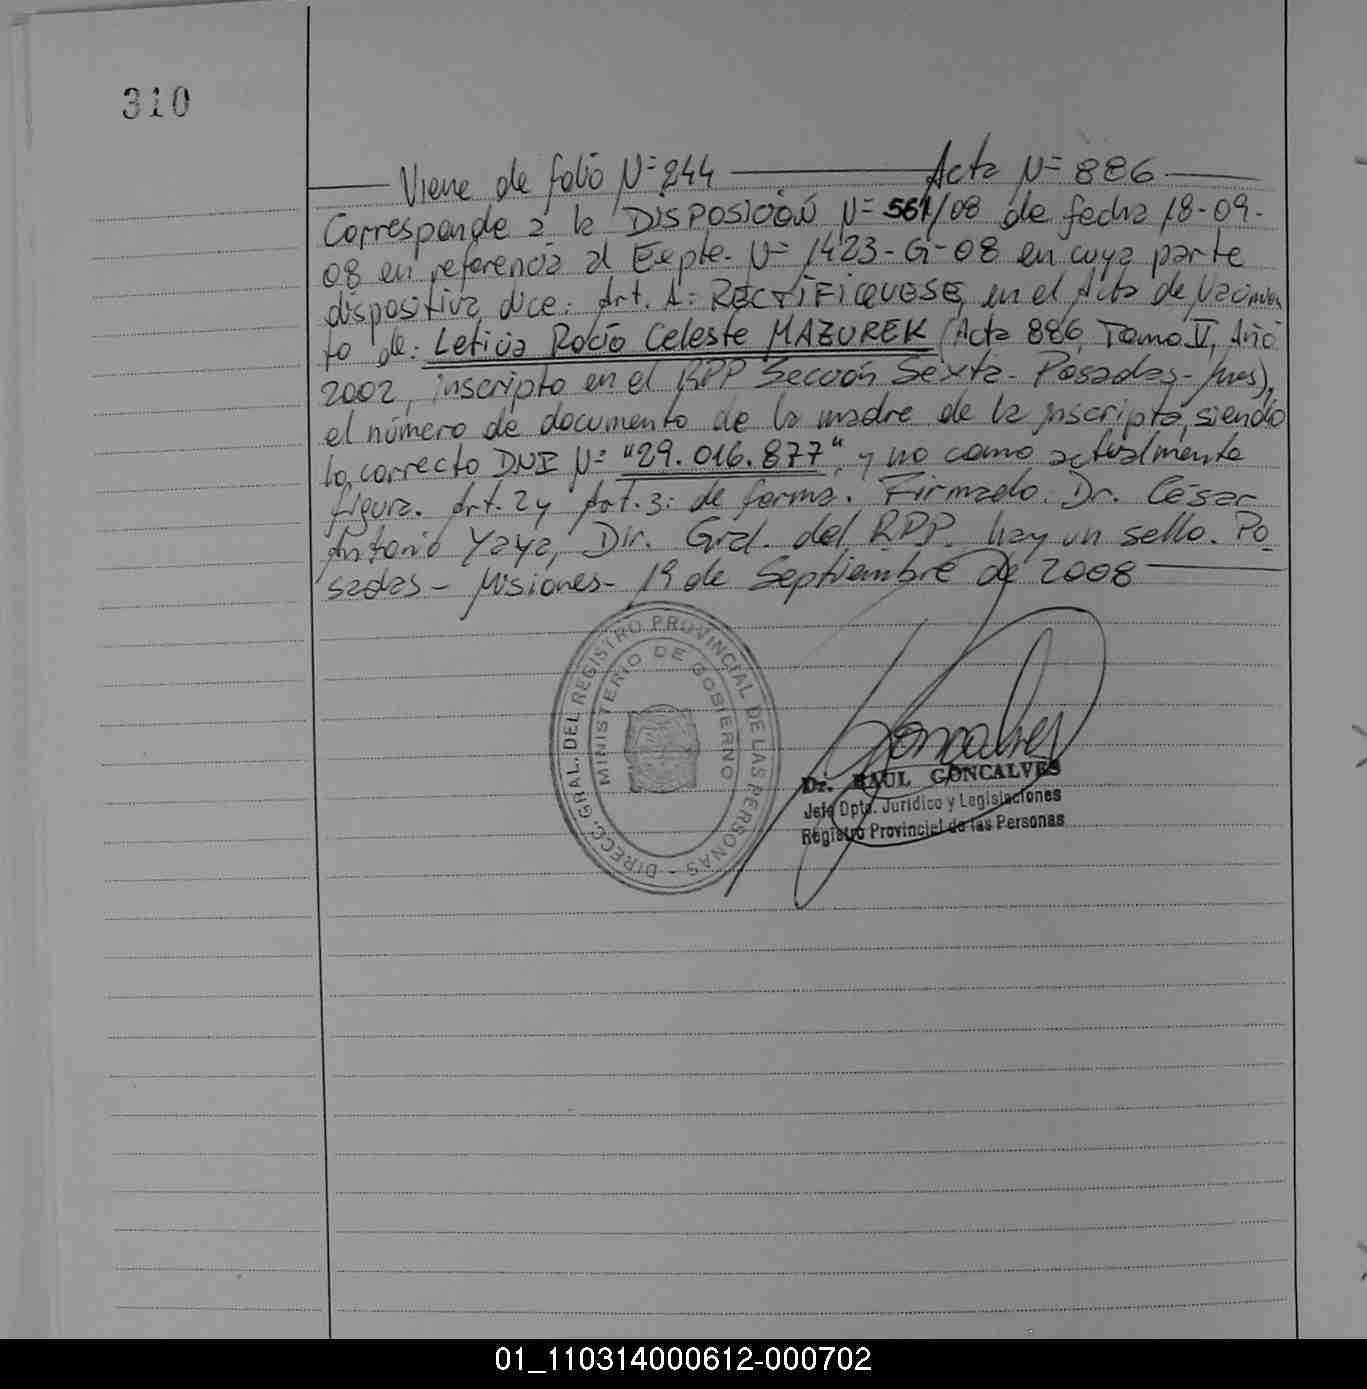 310
Viene de folio Nº 244 Acta Nº 886
Corresponde a la DISPOSICIÓN Nº 561/08 de fecha 18-09-
08 en referencia al Expte. Nº 1423-G-08 en cuya parte
dispositiva dice: Art. 1: RECTIFIQUESE, en el Acta de Nacimien
to de: Leticia Rocío Celeste MAZUREK (Acta 886, Tomo V, Año
2002, inscripto en el RPP Sección Sexta - Posadas - Mnes),
el número de documento de la madre de la inscripta, siendo
lo correcto DNI Nº "29.016.877", y no como actualmente
figura. Art. 2 y Art. 3: de forma. Firmado. Dr. César
Antonio Yaya, Dir. Gral. del RPP. hay un sello. Po
sadas - Misiones - 19 de Septiembre de 2008
DIRECC. GRAL. DEL REGISTRO PROVINCIAL DE LAS PERSONAS -
MINISTERIO DE GOBIERNO
Goncalves
Dr. RAUL GONCALVES
Jefe Dpto. Jurídico y Legislaciones
Registro Provincial de las Personas
01_110314000612-000702